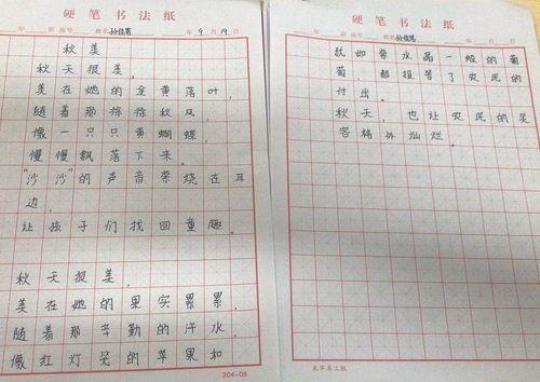 硬笔书法纸
年 班 姓名 9月19日
秋美
秋天很美，
美在她的金黄落叶，
随着那徐徐秋风，
像一只只黄蝴蝶，
慢慢飘落下来。
“沙沙”的声音萦绕在耳
边，
让孩子们找回童趣。
秋天很美，
美在她的果实累累，
随着那辛勤的汗水，
像红灯笼的苹果和
204-08
硬笔书法纸
年 班 姓名 年 月 日
犹如紫水晶一般的葡
萄，都报答了农民的
付出。
秋天，也让农民的笑
容格外灿烂。